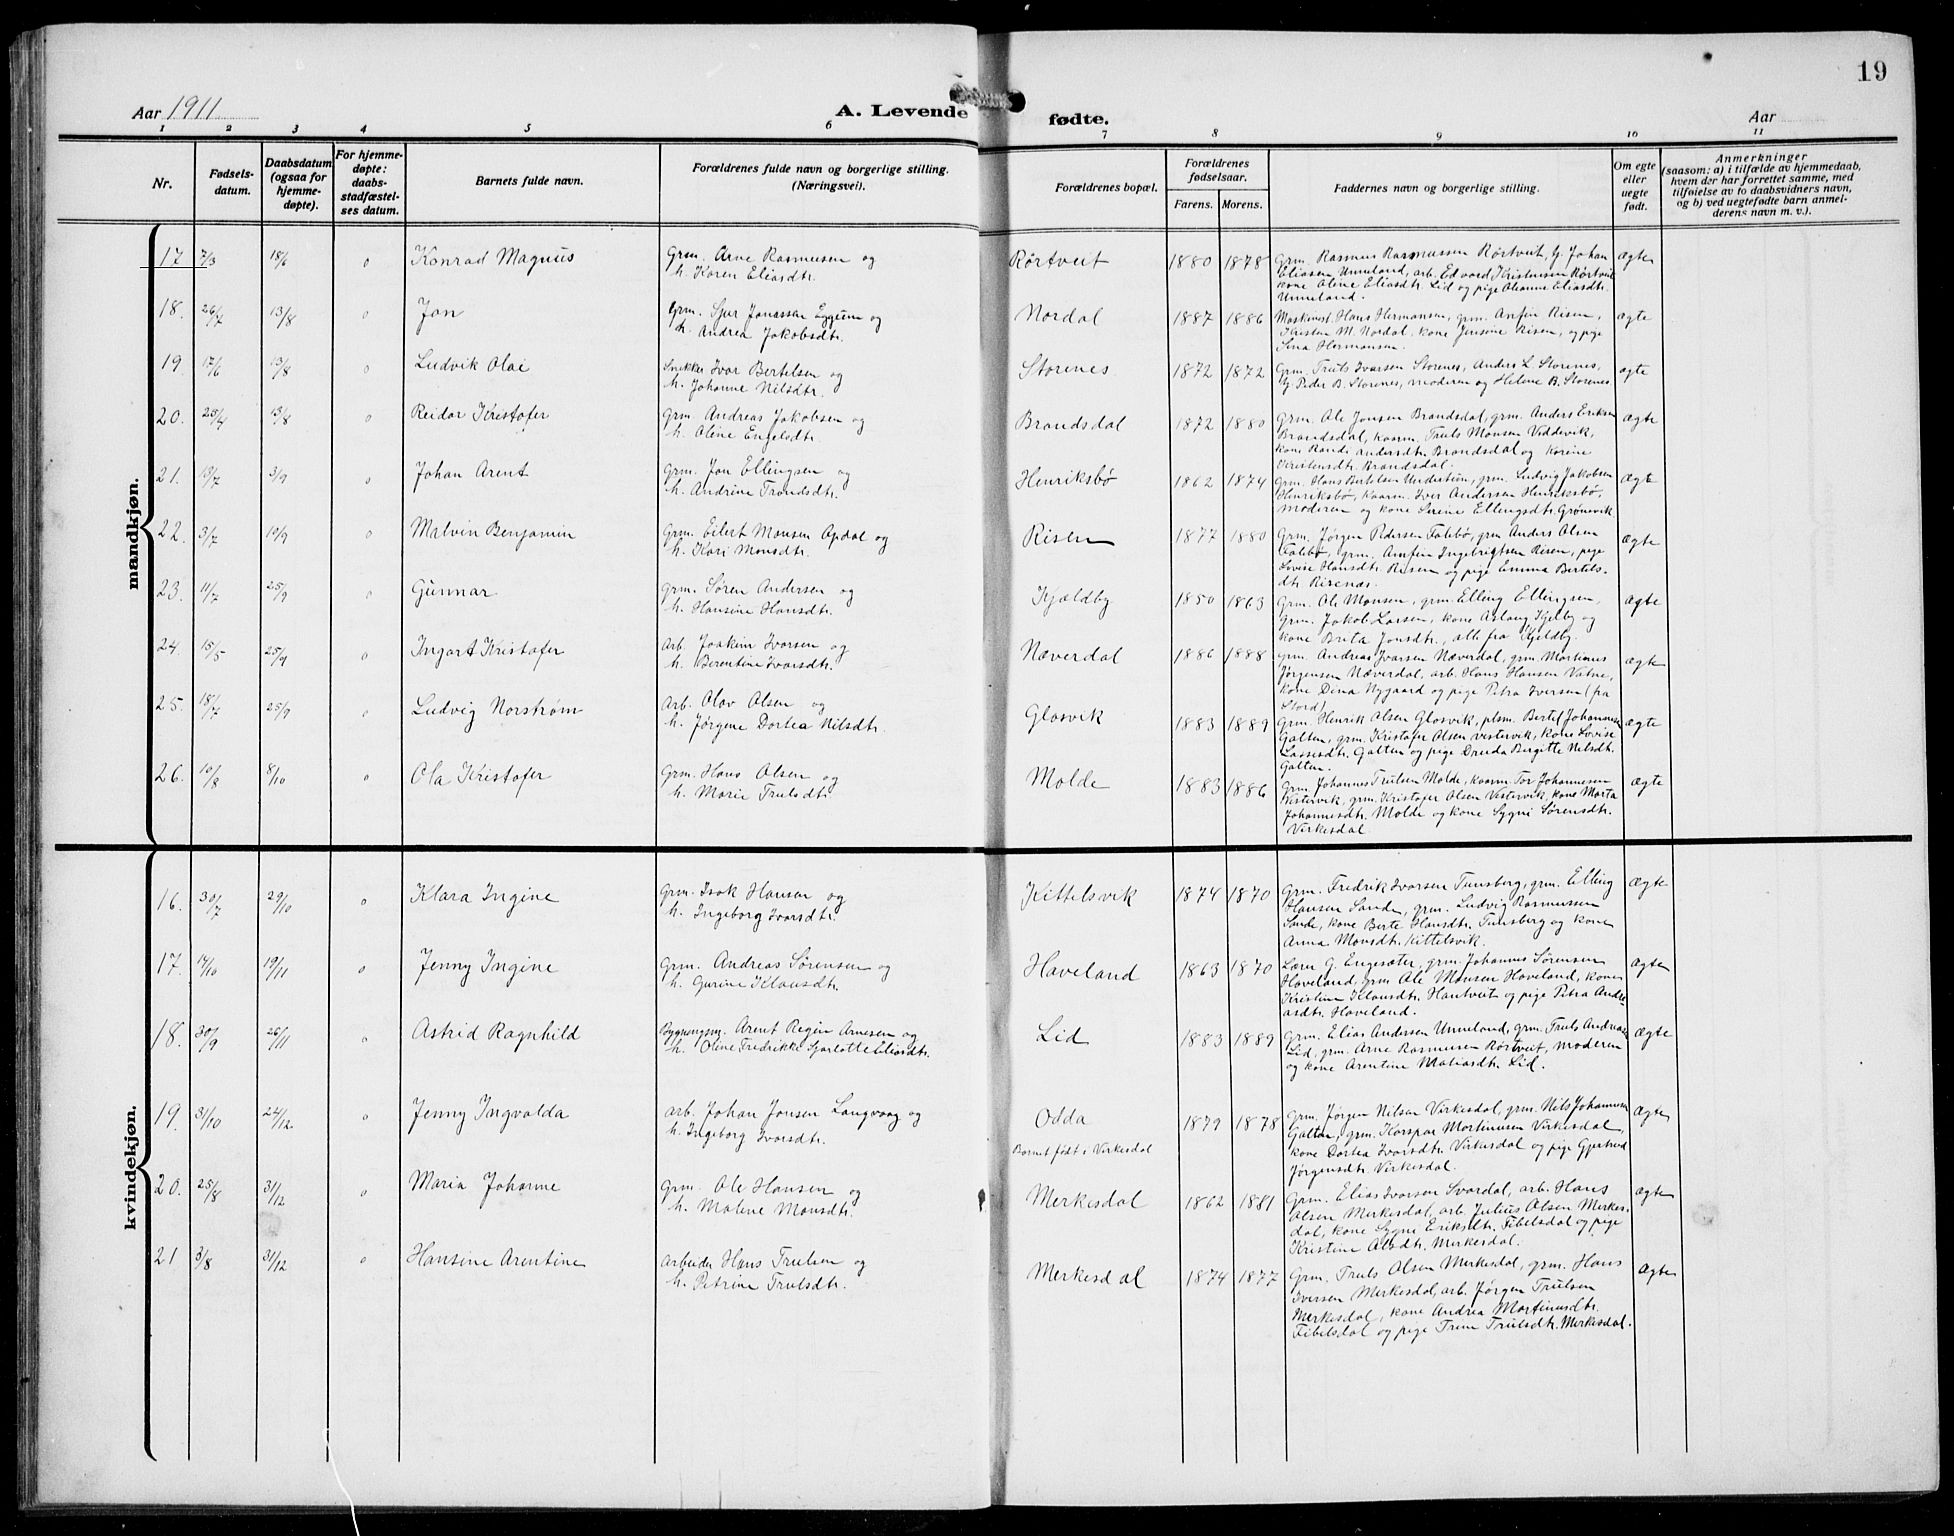 19
Aar 1911
A. Levende fødte.
Aar
1 2 3 4 5 6 7 8 9 10 11
Nr.
Fødsels-
datum.
Daabsdatum
(ogsaa for
hjemme-
døpte).
For hjemme-
døpte:
daabs-
stadfæstel-
ses datum.
Barnets fulde navn.
Forældrenes fulde navn og borgerlige stilling.
(Næringsvei).
Forældrenes bopæl.
Forældrenes
fødselsaar.
Farens. Morens.
Faddernes navn og borgerlige stilling.
Om egte
eller
uegte
født.
Anmerkninger
(saasom: a) i tilfælde av hjemmedaab,
hvem der har forrettet samme, med
tilføielse av to daabsvidners navn,
og b) ved uegtefødte barn anmel-
derens navn m. v.).
mandkjøn.
17 7/3 18/6 o Konrad Magnus
Grm. Arne Rasmussen og
h. Karen Eliasdtr.
Rørtveit 1880 1878
Grm. Rasmus Rasmussen Rørtveit, g. Johan
Eliasen Unneland, arb. Edvard Kristensen Rørtveit
kone Oline Eliasdtr. Lid og pige Oleanne Eliasdtr.
Unneland.
ægte
18. 26/7 13/8 o Jon
Grm. Sjur Jonassen Eggum og
h. Andrea Jakobsdtr.
Nordal 1887 1886
Maskinist Hans Hermansen, grm. Anfin Risen,
Kristen M. Nordal, kone Jensine Risen, og pige
Sina Hermansen.
ægte
19. 17/6 13/8 o Ludvik Olai
Snikker Ivar Bertelsen og
h. Johanne Nilsdtr.
Storenes 1872 1872
Grm. Truls Ivarsen Storenes, Anders L. Storenes,
g. Peder B. Storenes, moderen og Helene B. Storenes.
ægte
20. 25/4 13/8 o Reidar Kristofer
Grm. Andreas Jakobsen og
h. Oline Engelsdtr.
Brandsdal 1872 1880
Grm. Ole Jonsen Brandsdal, grm. Anders Eriksen
Brandsdal, kaarm. Truls Monsen Viddevik,
kone Randi Andersdtr. Brandsdal og Korine
Kristensdtr. Brandsdal.
ægte
21. 13/7 3/9 o Johan Arent
Grm. Jon Ellingsen og
h. Andrine Trondsdtr.
Henriksbø 1862 1874
Grm. Hans Bertelsen Undertun, grm. Ludvig Jakobsen
Henriksbø, kaarm. Iver Andersen Henriksbø,
moderen og kone Serine Ellingsdtr. Grønevik.
ægte
22. 3/7 10/9 o Malvin Benjamin
Grm. Eilert Monsen Opdal og
h. Kari Monsdtr.
Risen 1877 1880
Grm. Jørgen Pedersen Falebø, grm Anders Olsen
Falebø, grm. Amfin Ingebrigtsen Risen, pige
Lovise Hansdtr. Risen og pige Emma Bertels-
dtr. Risenæs.
ægte
23. 11/7 25/9 o Gunnar
Grm. Søren Andersen og
h. Hansine Hansdtr.
Kjældby 1850 1863
Grm. Ole Monsen, grm. Elling Ellingsen,
Grm. Jakob Larsen, kone Aslaug Kjelby og
kone Brita Jonsdtr., alle fra Kjeldby.
ægte
24. 15/5 25/9 o Ingart Kristofer
Arb. Joakim Ivarsen og
h. Berentine Ivarsdtr.
Næverdal 1886 1888
Grm. Andreas Ivarsen Næverdal, grm. Martinus
Jørgensen Næverdal, arb. Hans Hansen Vatne,
kone Dina Nygaard og pige Petra Iversen (fra
Stord)
ægte
25. 18/7 25/9 o Ludvig Norstrøm
Arb. Olav Olsen og
h. Jørgene Dortea Nilsdtr.
Glosvik 1883 1889
Grm. Henrik Olsen Glosvik, plsm. Bertel Johannesen
Galten, grm. Kristofer Olsen Vestervik, kone Lovise
Lassesdtr. Galten og pige Dreda Birgitte Nilsdtr.
Galten.
ægte
26. 10/8 8/10 o Ola Kristofer
Grm. Hans Olsen og
h. Marie Trulsdtr.
Molde 1883 1886
Grm. Johannes Trulsen Molde, kaarm. Tor Johannesen
Vestervik, grm. Kristofer Olsen Vestervik, kone Marta
Johannesdtr. Molde og kone Sygni Sørensdtr.
Virkesdal
ægte
kvindekjøn.
16. 30/7 29/10 o Klara Ingine
Grm. Isak Hansen og
h. Ingeborg Ivarsdtr.
Kittelsvik 1874 1870
Grm. Fredrik Ivarsen Tunsberg, grm. Elling
Hansen Sande, grm. Ludvig Rasmussen
Sande, kone Berte Hansdtr. Tunsberg og kone
Anna Monsdtr. Kittelsvik.
ægte
17. 14/10 19/11 o Jenny Ingine
Grm. Andreas Sørensen og
h. Gurine Klausdtr.
Haveland 1863 1870
Lærer G. Engesæter, grm. Johannes Sørensen
Haveland, grm Ole Monsen Haveland, kone
Kristine Klausdtr. Hantveit og pige Petra Andre-
asdtr. Haveland.
ægte
18. 30/9 26/11 o Astrid Ragnhild
Bygningsm. Arent Regin Arnesen og
h. Oline Fredrikke Sjarlotte Eliasdtr.
Lid 1883 1889
Grm. Elias Andersen Unneland, grm. Truls Andreasen
Lid, grm. Arne Rasmussen Rørtveit, moderen
og kone Arentine Matiasdtr. Lid.
ægte
19. 31/10 24/12 o Jenny Ingvalda
Arb. Johan Jonsen Langvaag og
h. Ingeborg Ivarsdtr.
Odda
Barnet født i Virkesdal
1879 1878
Grm. Jørgen Nilsen Virkesdal, grm. Nils Johannesen
Galten, grm. Kaspar Martinusen Virkesdal,
kone Dortea Ivarsdtr. Virkesdal og pige Gjertrud
Jørgensdtr. Virkesdal.
ægte
20. 25/8 31/12 o Maria Johanne
Grm. Ole Hansen og
h. Malene Monsdtr.
Merkesdal 1862 1881
Grm. Elias Ivarsen Svardal, arb. Hans
Olsen Merkesdal, arb. Julius Olsen Merkes-
dal, kone Sygni Eriksdtr. Fibelsdal og pige
Kristine Olsdtr. Merkesdal.
ægte
21 3/8 31/12 o Hansine Arentine
Arbeider Hans Trulsen og
h. Petrine Trulsdtr.
Merkesdal 1874 1877
Grm. Truls Olsen Merkesdal, grm. Hans
Iversen Merkesdal, arb. Jørgen Trulsen
Merkesdal, kone Andrea Martinusdtr.
Fibelsdal og pige Trine Trulsdtr. Merkesdal.
ægte